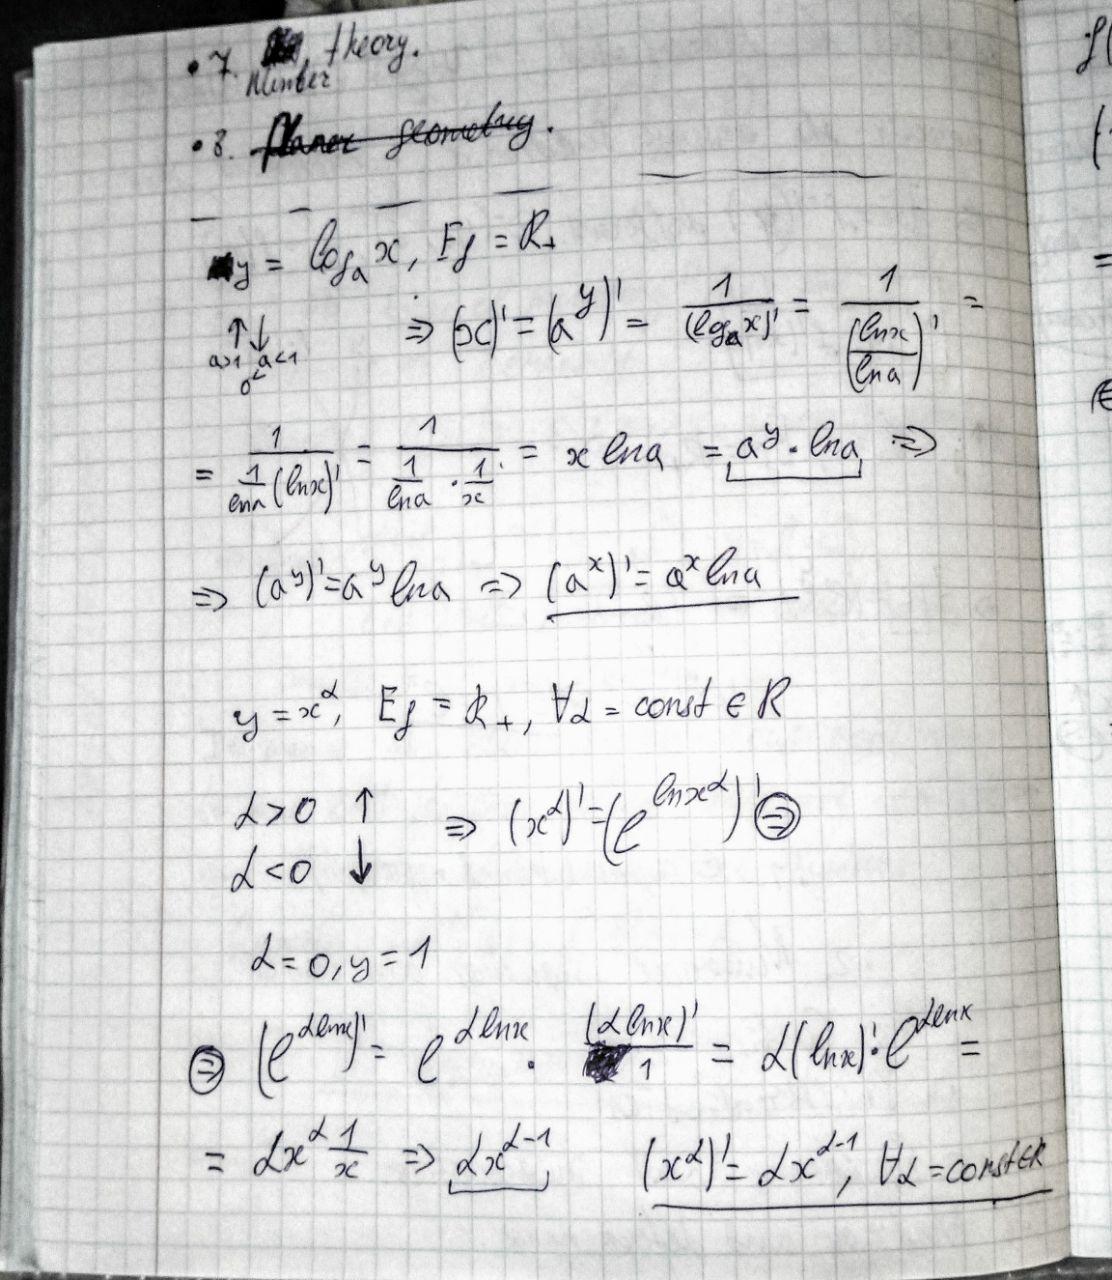 • 7. Number theory.
• 8. Planer geometry.
y = logₐ x, E_f = R₊
↑ ↓
a>1 0<a<1
⇒ (x)' = (a^y)' = 1/(logₐx)' = 1/(lnx/lna)' =
= 1/(1/lna (lnx)') = 1/(1/lna · 1/x) = x lna = a^y · lna ⇒
⇒ (a^y)' = a^y lna ⇒ (a^x)' = a^x lna
y = x^α, E_f = R₊, ∀α = const ∈ R
α > 0 ↑
⇒ (x^α)' = (e^(lnx^α))' ⊜
α < 0 ↓
α = 0, y = 1
⊜ (e^(αlnx))' = e^(αlnx) · (αlnx)'/1 = α(lnx)' · e^(αlnx) =
= αx^α 1/x ⇒ αx^(α-1) (x^α)' = αx^(α-1), ∀α = const ∈ R